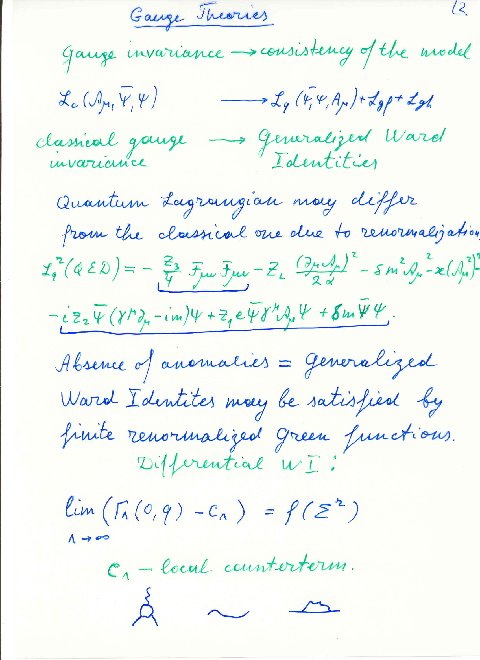 Gauge Theories 12
Gauge invariance → consistency of the model
ℒc (Aμ, Ψ̄, Ψ) → ℒq (Ψ̄, Ψ, Aμ) + ℒgf + ℒgh
classical gauge → Generalized Ward
invariance Identities
Quantum Lagrangian may differ
from the classical one due to renormalization
ℒq^r (QED) = - Z3/4 Fμν Fμν - ZL (∂μAμ)²/2α - δm²Aμ² - æ(Aμ²)²
- i Z2 Ψ̄ (γ^μ ∂μ - im) Ψ + Z1 e Ψ̄ γ^μ Aμ Ψ + δm Ψ̄ Ψ.
Absence of anomalies = Generalized
Ward Identites may be satisfied by
finite renormalized Green functions.
Differential WI:
lim (ΓΛ (0, q) - CΛ) = f (Σ^r)
Λ→∞
CΛ - local counterterm.